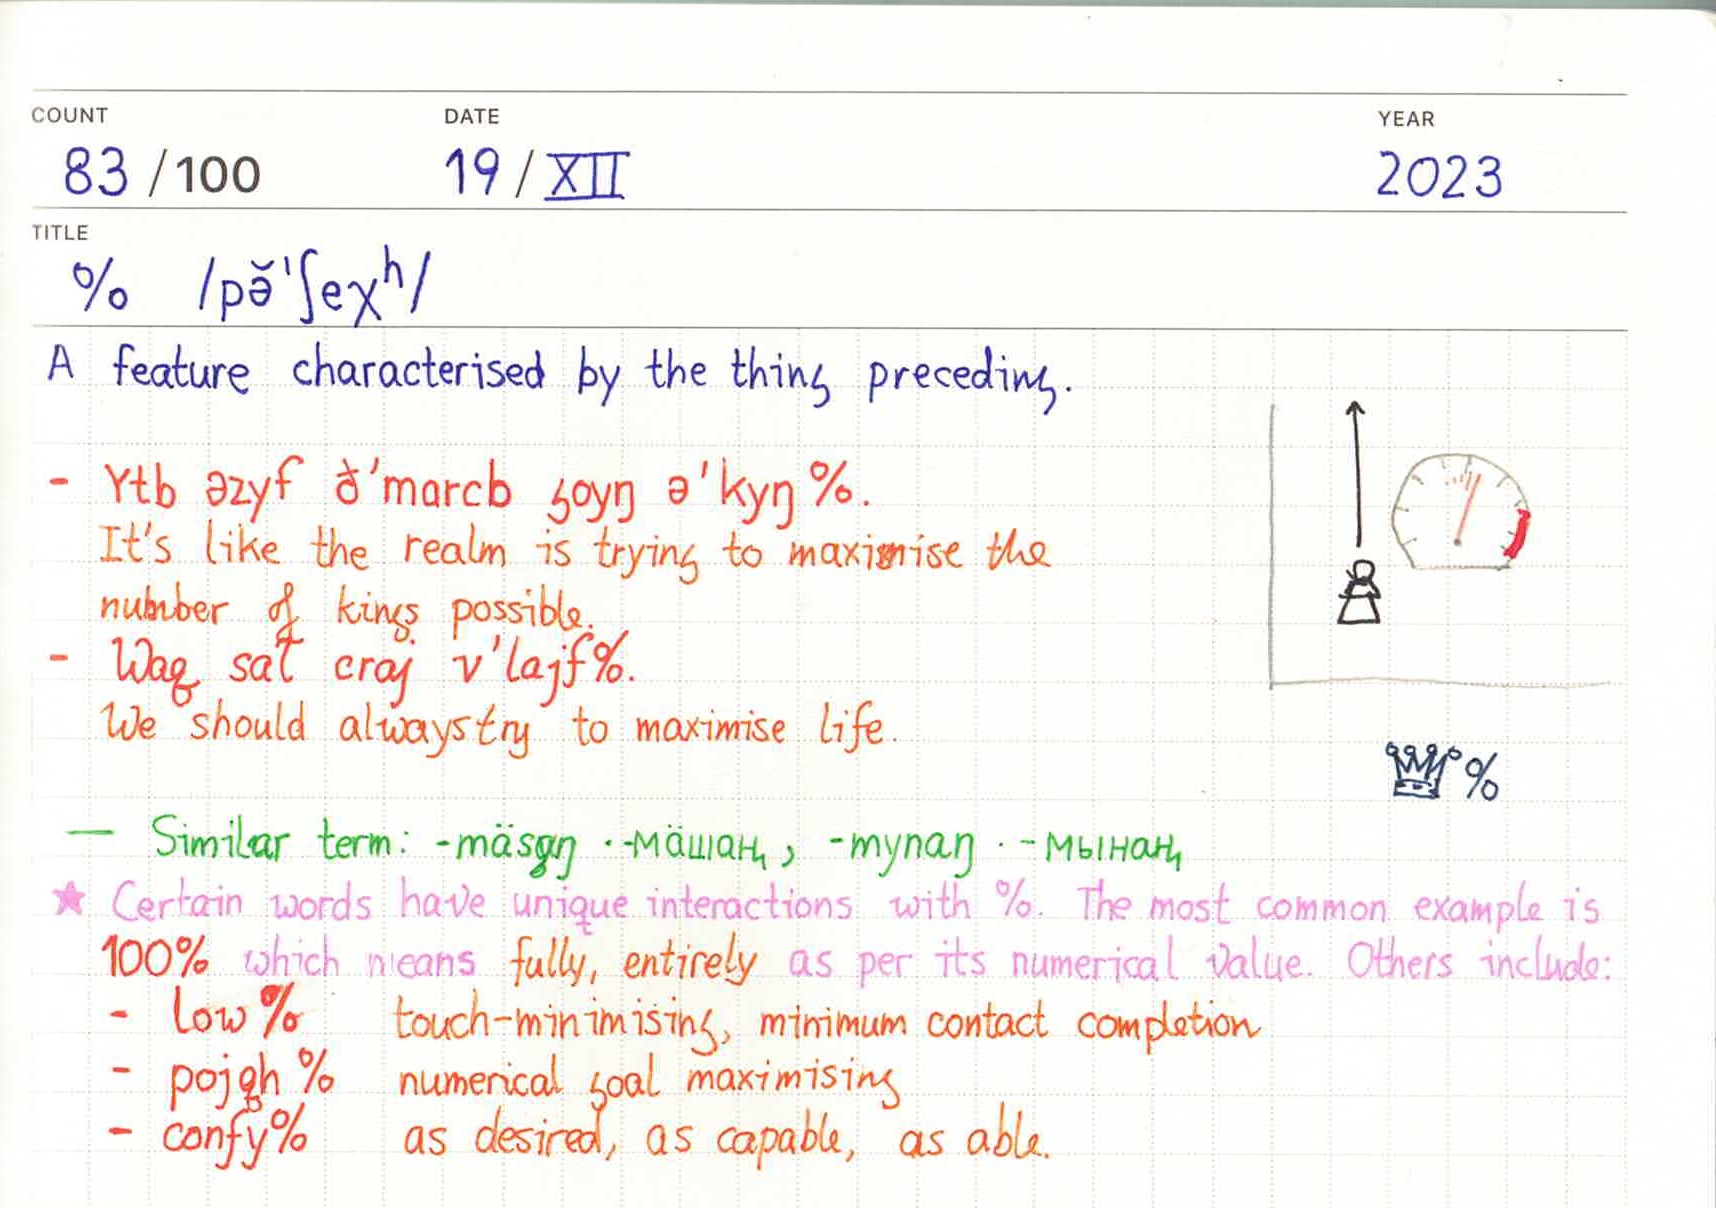 COUNT DATE YEAR
83 /100 19 / XII 2023
TITLE
% /pə̆ˈʃeχʰ/
A feature characterised by the thing preceding.
- Ytb əzyf ð'marcb goyŋ ə'kyŋ%.
It's like the realm is trying to maximise the
number of kings possible.
- Waq sat craj v'lajf%.
We should always try to maximise life.
— Similar term: -mäsaŋ · -мӓшаң, -mynaŋ · -мынаң
★ Certain words have unique interactions with %. The most common example is
100% which means fully, entirely as per its numerical value. Others include:
- low% touch-minimising, minimum contact completion
- pojqh% numerical goal maximising
- confy% as desired, as capable, as able.
%